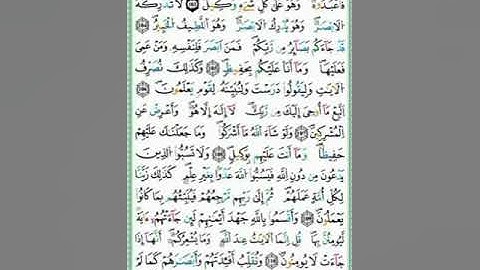 فَاعْبُدُوهُ ۚ وَهُوَ عَلَىٰ كُلِّ شَيْءٍ وَكِيلٌ ﴿١٠٢﴾ لَا تُدْرِكُهُ
الْأَبْصَٰرُ وَهُوَ يُدْرِكُ الْأَبْصَٰرَ ۖ وَهُوَ اللَّطِيفُ الْخَبِيرُ ﴿١٠٣﴾
قَدْ جَاءَكُم بَصَائِرُ مِن رَّبِّكُمْ ۖ فَمَنْ أَبْصَرَ فَلِنَفْسِهِ ۖ وَمَنْ عَمِيَ
فَعَلَيْهَا ۚ وَمَا أَنَا عَلَيْكُم بِحَفِيظٍ ﴿١٠٤﴾ وَكَذَٰلِكَ نُصَرِّفُ
الْآيَٰتِ وَلِيَقُولُوا دَرَسْتَ وَلِنُبَيِّنَهُ لِقَوْمٍ يَعْلَمُونَ ﴿١٠٥﴾
اتَّبِعْ مَا أُوحِيَ إِلَيْكَ مِن رَّبِّكَ ۖ لَا إِلَٰهَ إِلَّا هُوَ ۖ وَأَعْرِضْ عَنِ
الْمُشْرِكِينَ ﴿١٠٦﴾ وَلَوْ شَاءَ اللَّهُ مَا أَشْرَكُوا ۗ وَمَا جَعَلْنَٰكَ عَلَيْهِمْ
حَفِيظًا ۖ وَمَا أَنتَ عَلَيْهِم بِوَكِيلٍ ﴿١٠٧﴾ وَلَا تَسُبُّوا الَّذِينَ
يَدْعُونَ مِن دُونِ اللَّهِ فَيَسُبُّوا اللَّهَ عَدْوًا بِغَيْرِ عِلْمٍ ۗ كَذَٰلِكَ زَيَّنَّا
لِكُلِّ أُمَّةٍ عَمَلَهُمْ ثُمَّ إِلَىٰ رَبِّهِم مَّرْجِعُهُمْ فَيُنَبِّئُهُم بِمَا كَانُوا
يَعْمَلُونَ ﴿١٠٨﴾ وَأَقْسَمُوا بِاللَّهِ جَهْدَ أَيْمَٰنِهِمْ لَئِن جَاءَتْهُمْ ءَايَةٌ
لَّيُؤْمِنُنَّ بِهَا ۚ قُلْ إِنَّمَا الْآيَٰتُ عِندَ اللَّهِ ۖ وَمَا يُشْعِرُكُمْ أَنَّهَا إِذَا
جَاءَتْ لَا يُؤْمِنُونَ ﴿١٠٩﴾ وَنُقَلِّبُ أَفْئِدَتَهُمْ وَأَبْصَٰرَهُمْ كَمَا لَمْ